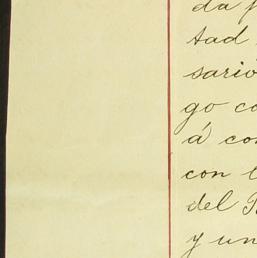 da
tad
sario
go co
á con
con l
del
y un